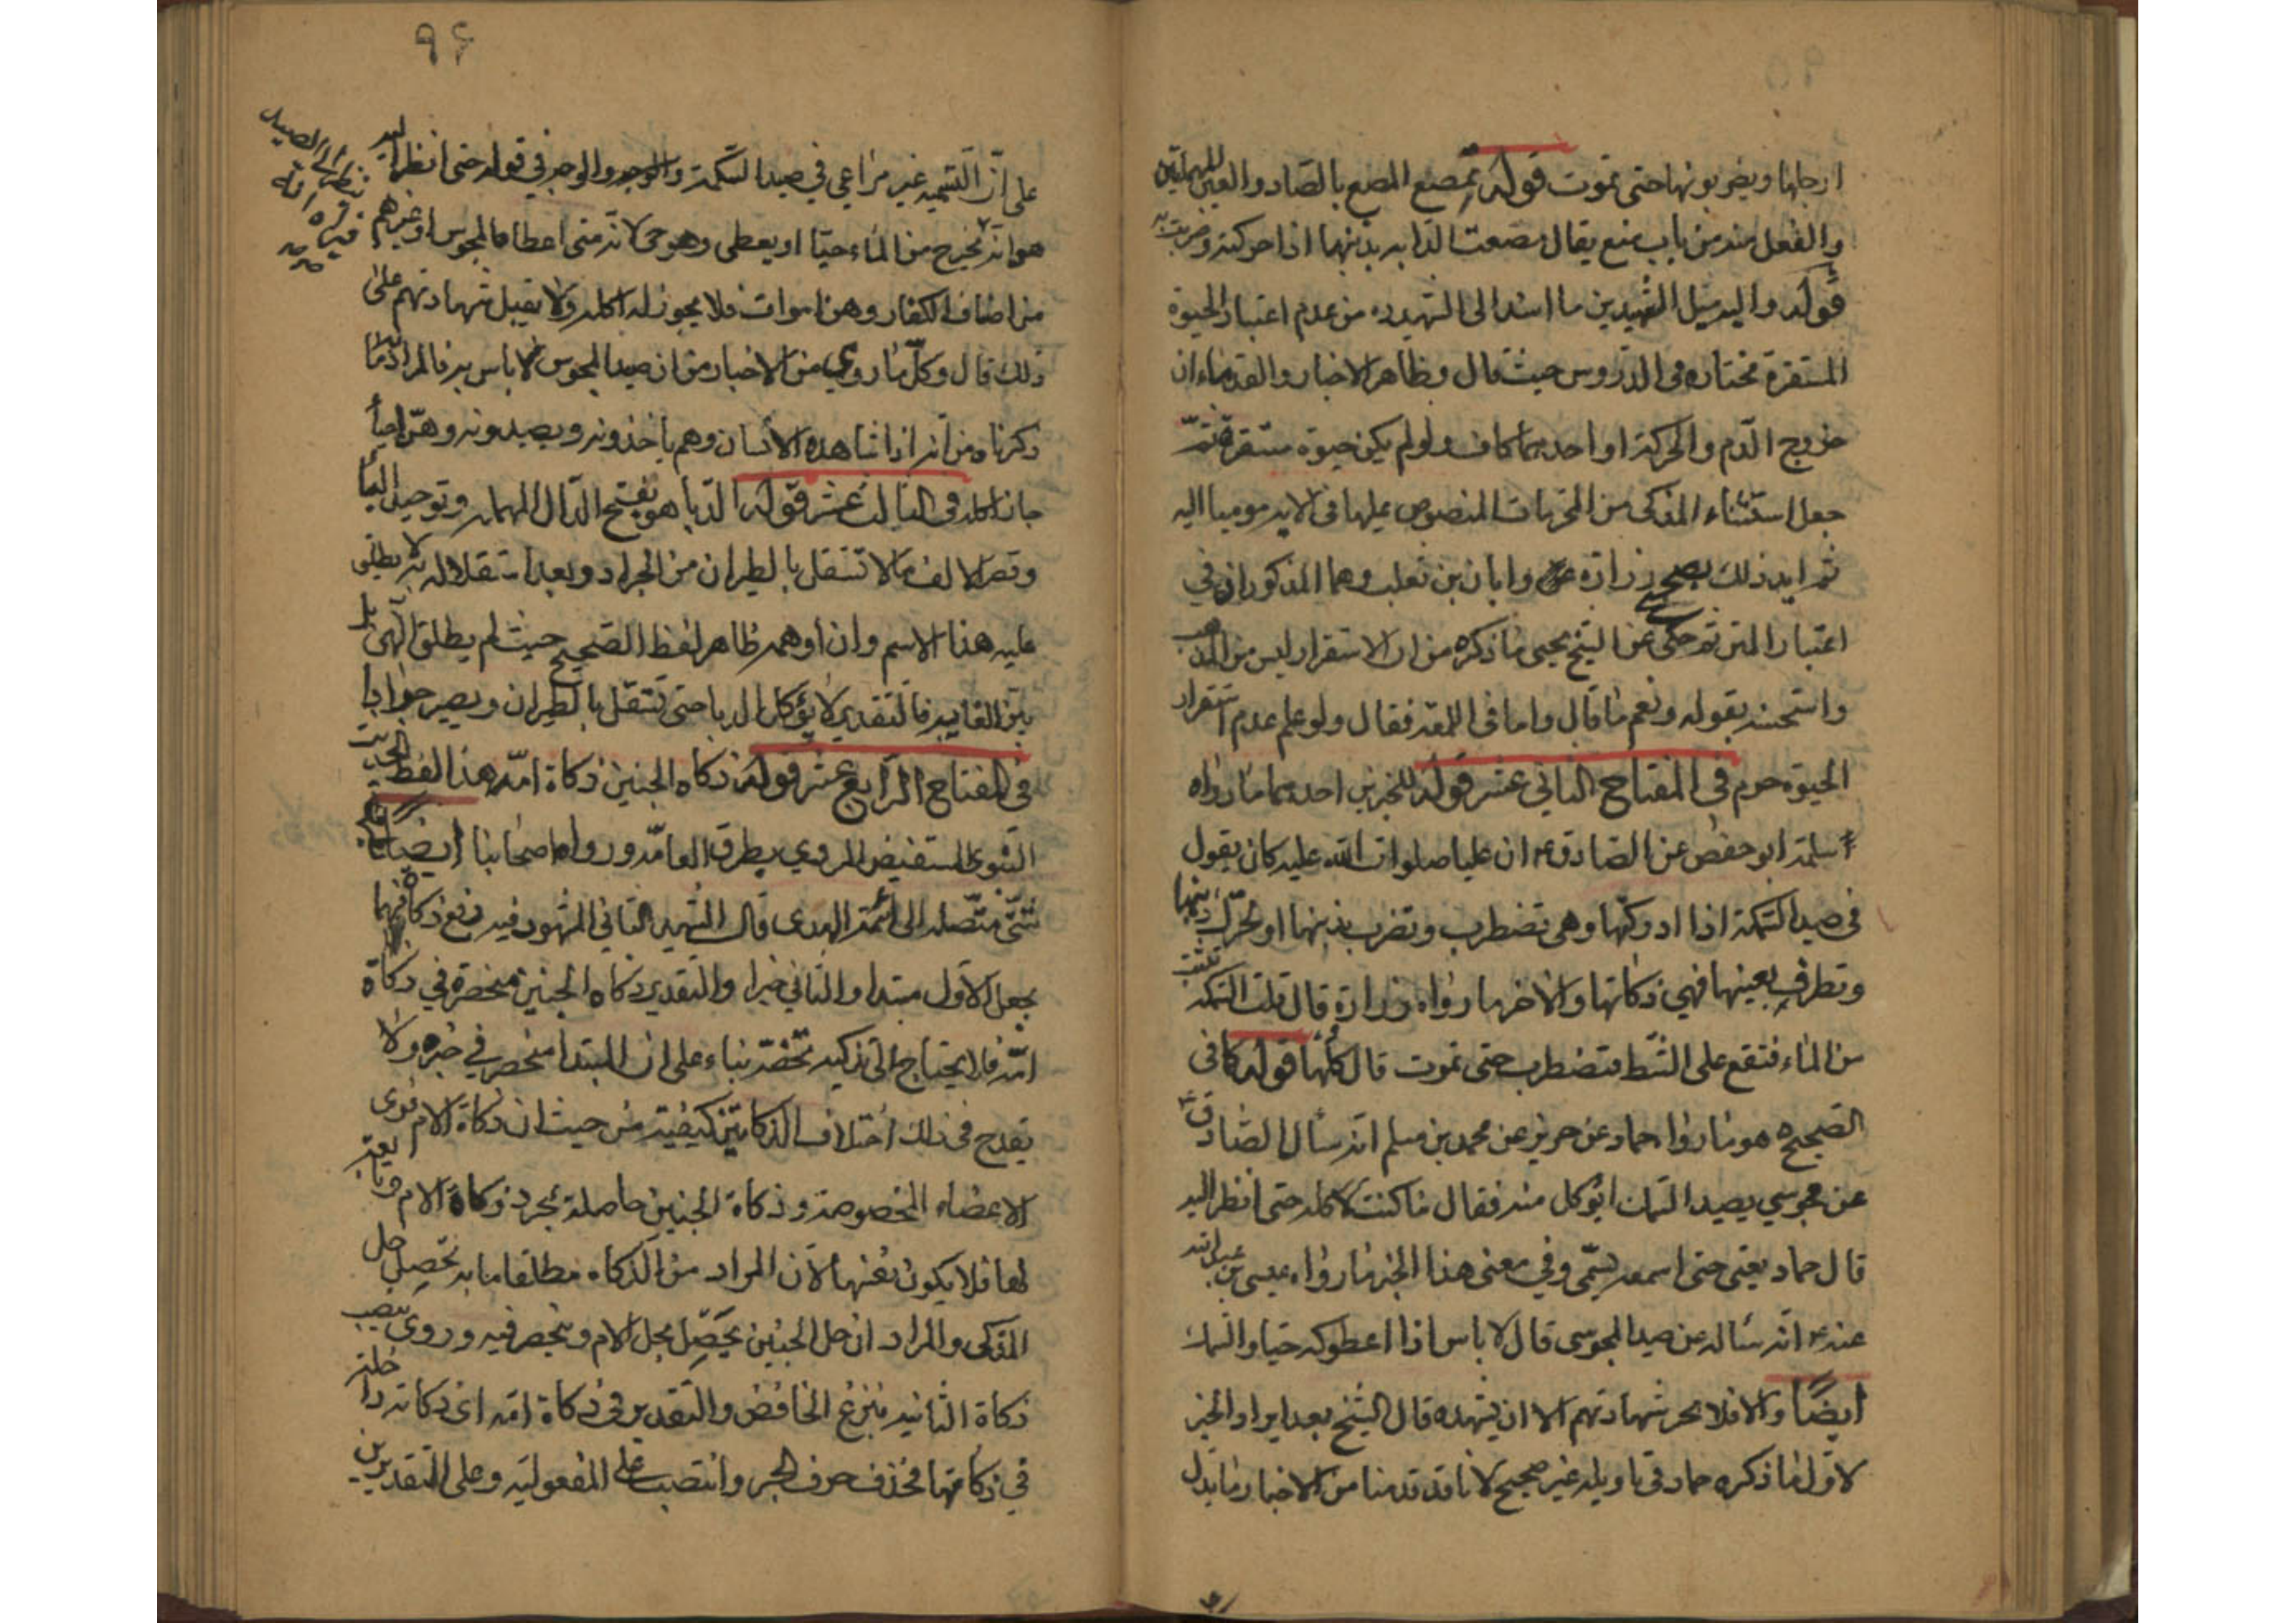 ارجلها ويضربونها حتى تموت قوله تمصع المصع بالصاد والعين المهملتين
والفعل منه من باب منع يقال مصعت الدابه بذنبها اذا حركته وضربت به
قوله واليه ميل الشهيدين ما اسند الى الشهيد ره من عدم اعتبار الحيوة
المستقرة مختاره فى الدروس حيث قال وظاهر الاخبار والقدماء ان
خروج الدّم والحركة او احدهما كاف ولو لم يكن حيوة مستقرة ثمّ
جعل استثناء المذكى من المحرمات المنصوص عليها فى الايه مومياا اليه
ثم ايد ذلك بصحيح زرارة وابان بن تغلب وهما المذكوران في
اعتبار المتن ثم حكى عن الشيخ يحيى ما ذكره من ان الاستقرار ليس من المذهب
واستحسنه بقوله ونعم ما قال واما فى اللمعه فقال ولو علم عدم استقرار
الحيوة حرم فى المفتاح الثاني عشر قوله للخبرين احدهما ما رواه
سلمة ابو حفص عن الصادق ع ان عليا صلوات الله عليه كان يقول
فى صيد السّمكة اذا ادركتها وهى تضطرب وتضرب بذنبها او تحرّك ذنبها
وتطرف بعينها فهي ذكاتها والاخر ما رواه زرارة قال قلت السّمكه تثبت
من الماء فتقع على الشّط فتضطرب حتى تموت قال كلها قوله كما فى
الصحيح هو ما رواه حماد عن حريز عن محمد بن مسلم انه سأل الصّادق ع
عن مجوسي يصيد السّمك ايؤكل منه فقال ما كنت لاكله حتى انظر اليه
قال حماد يعني حتى اسمعه يسّمي وفي معنى هذا الخبر ما رواه عيسى بن عبد الله
عنه ع انّه سئاله عن صيد المجوسى قال لا باس اذا اعطوكه حيّا والسّمك
ايضًا والا فلا تجز شهادتهم الا ان يشهده قال الشيخ بعد ايراد الخبر
الاوّل ما ذكره حماد فى تاويله غير صحيح لانا قد قدمنا من الاخبار ما يدل
٩٦
على انّ التّسميه غير مراعي في صيد السّمكة والوجه في قوله حتى انظر اليه
ينظر الى الصيد
هو انّه يخرج من الماء حيّا او يعطى وهو حى لانّه متى اعطاه المجوس او غيرهم
من اصناف الكفار وهن اموات فلا يجوز له اكله ولا يقبل شهادتهم على
ذلك قال وكلّ ما روي من الاخبار من ان صيد المجوس لا باس به فالمراد به ما
ذكرناه من انه اذا شاهده الانسان وهم ياخذونه ويصيدونه وهنّ احيأ
جاز اكله فى الثالث عشر قوله الدّبا هو بفتح الدّال المهمله وتوحيد البا
وقصر الالف ما لا تستقل بالطيران من الجراد وبعد استقلاله به لا يطلق
عليه هذا الاسم وان أوهمه ظاهر لفظ الصّحيح حيث لم يطلق النّهى بل
بيّن الغايه فالتقدير لا يؤكل الدبا حتى تستقل بالطيران ويصير جرادا
فى المفتاح الرّابع عشر قوله ذكاه الجنين ذكاة امّه هذا لفظ الحديث
النبوى المستفيض المروي بطرق العامّه ورواه اصحابنا ايضًا
متصله الى ائمة الهدى قال الشهيد الثاني المشهور فيه رفع ذكاة فيهما
بجعل الاوّل مبتدا والثاني خبرا والتقدير ذكاه الجنين منحصرة في ذكاة
امّه فلا يحتاج الى تذكيه تخصّه بناء على ان المبتدا منحصر في خبره ولا
يقدح فى ذلك اختلاف الذكاتين كيفيّة من حيث ان ذكاة الام فرى
الاعضاء المخصوصة وذكاة الجنين حاصلة بمجرد ذكاة الام
لها فلا يكون نفسها لانّ المراد من الذكاه مطلقا ما به تحصيل حل
المذكى والمراد ان حل الجنين يحصّل بحل الام وينحصر فيه وروى بنصب
ذكاة الثانيه بنزع الخافض والتقدير فى ذكاة امّه اى ذكاته داخلة
في ذكاتها فحذف حرف الجر وانتصب على المفعولية وعلى التقديرين